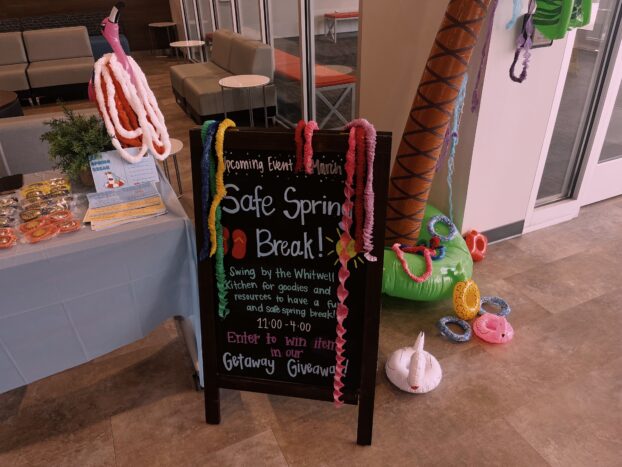 Upcoming Event March
Safe Sprin
Break!
Swing by the Whitwell
Kitchen for goodies and
resources to have a fu
and safe spring break!
11:00-4:00
Enter to win item
in our
Getaway Giveaway!
SPRING
BREAK